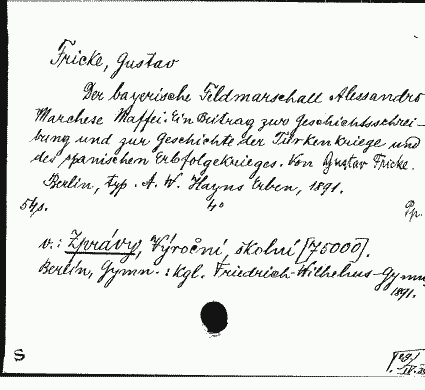 Fricke, Gustav
Der bayerische Feldmarschall Alessandro
Marchese Maffei. Ein Beitrag zur Geschichtsschrei-
bung und zur Geschichte der Türkenkriege und
des spanischen Erbfolgekrieges. Von Gustav Fricke.
Berlin, typ. A. W. Hayns Erben, 1891.
54 s. 4° Pp.
v.: Zprávy, Výroční, školní [75000].
Berlin, Gymn.: Kgl. Friedrich-Wilhelms-Gymn.
1891.
S